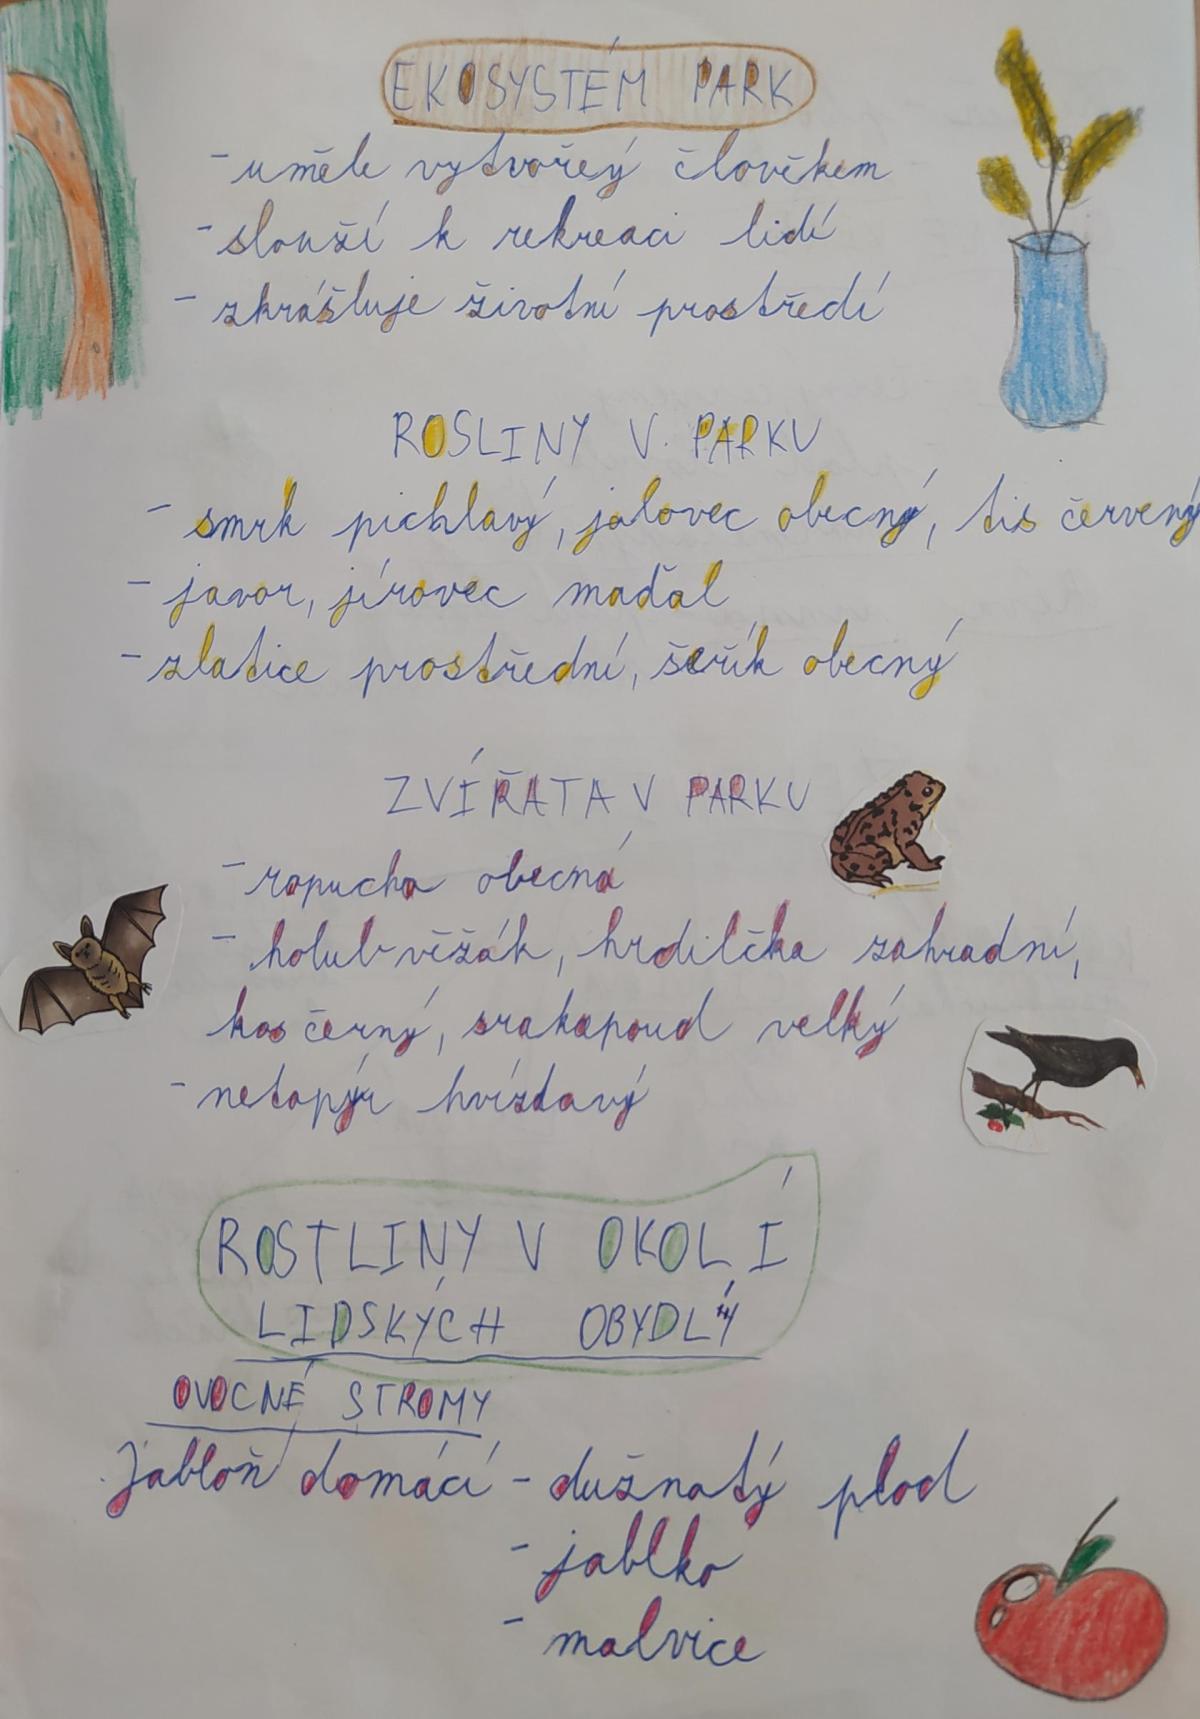 EKOSYSTÉM PARK
- uměle vytvořeý člověkem
- slouží k rekreaci lidí
- zkrášluje životní prostředí
ROSLINY V PARKU
- smrk pichlavý, jalovec obecný, tis červený
- javor, jírovec maďal
- zlatice prostřední, šeřík obecný
ZVÍŘATA V PARKU
- ropucha obecná
- holub věžák, hrdilčka zahradní,
kos černý, srakapoud velký
- netopýr hvízdavý
ROSTLINY V OKOLÍ
LIDSKÝCH OBYDLÝ
OVOCNÉ STROMY
Jabloň domácí - dužnatý plod
- jablko
- malvice